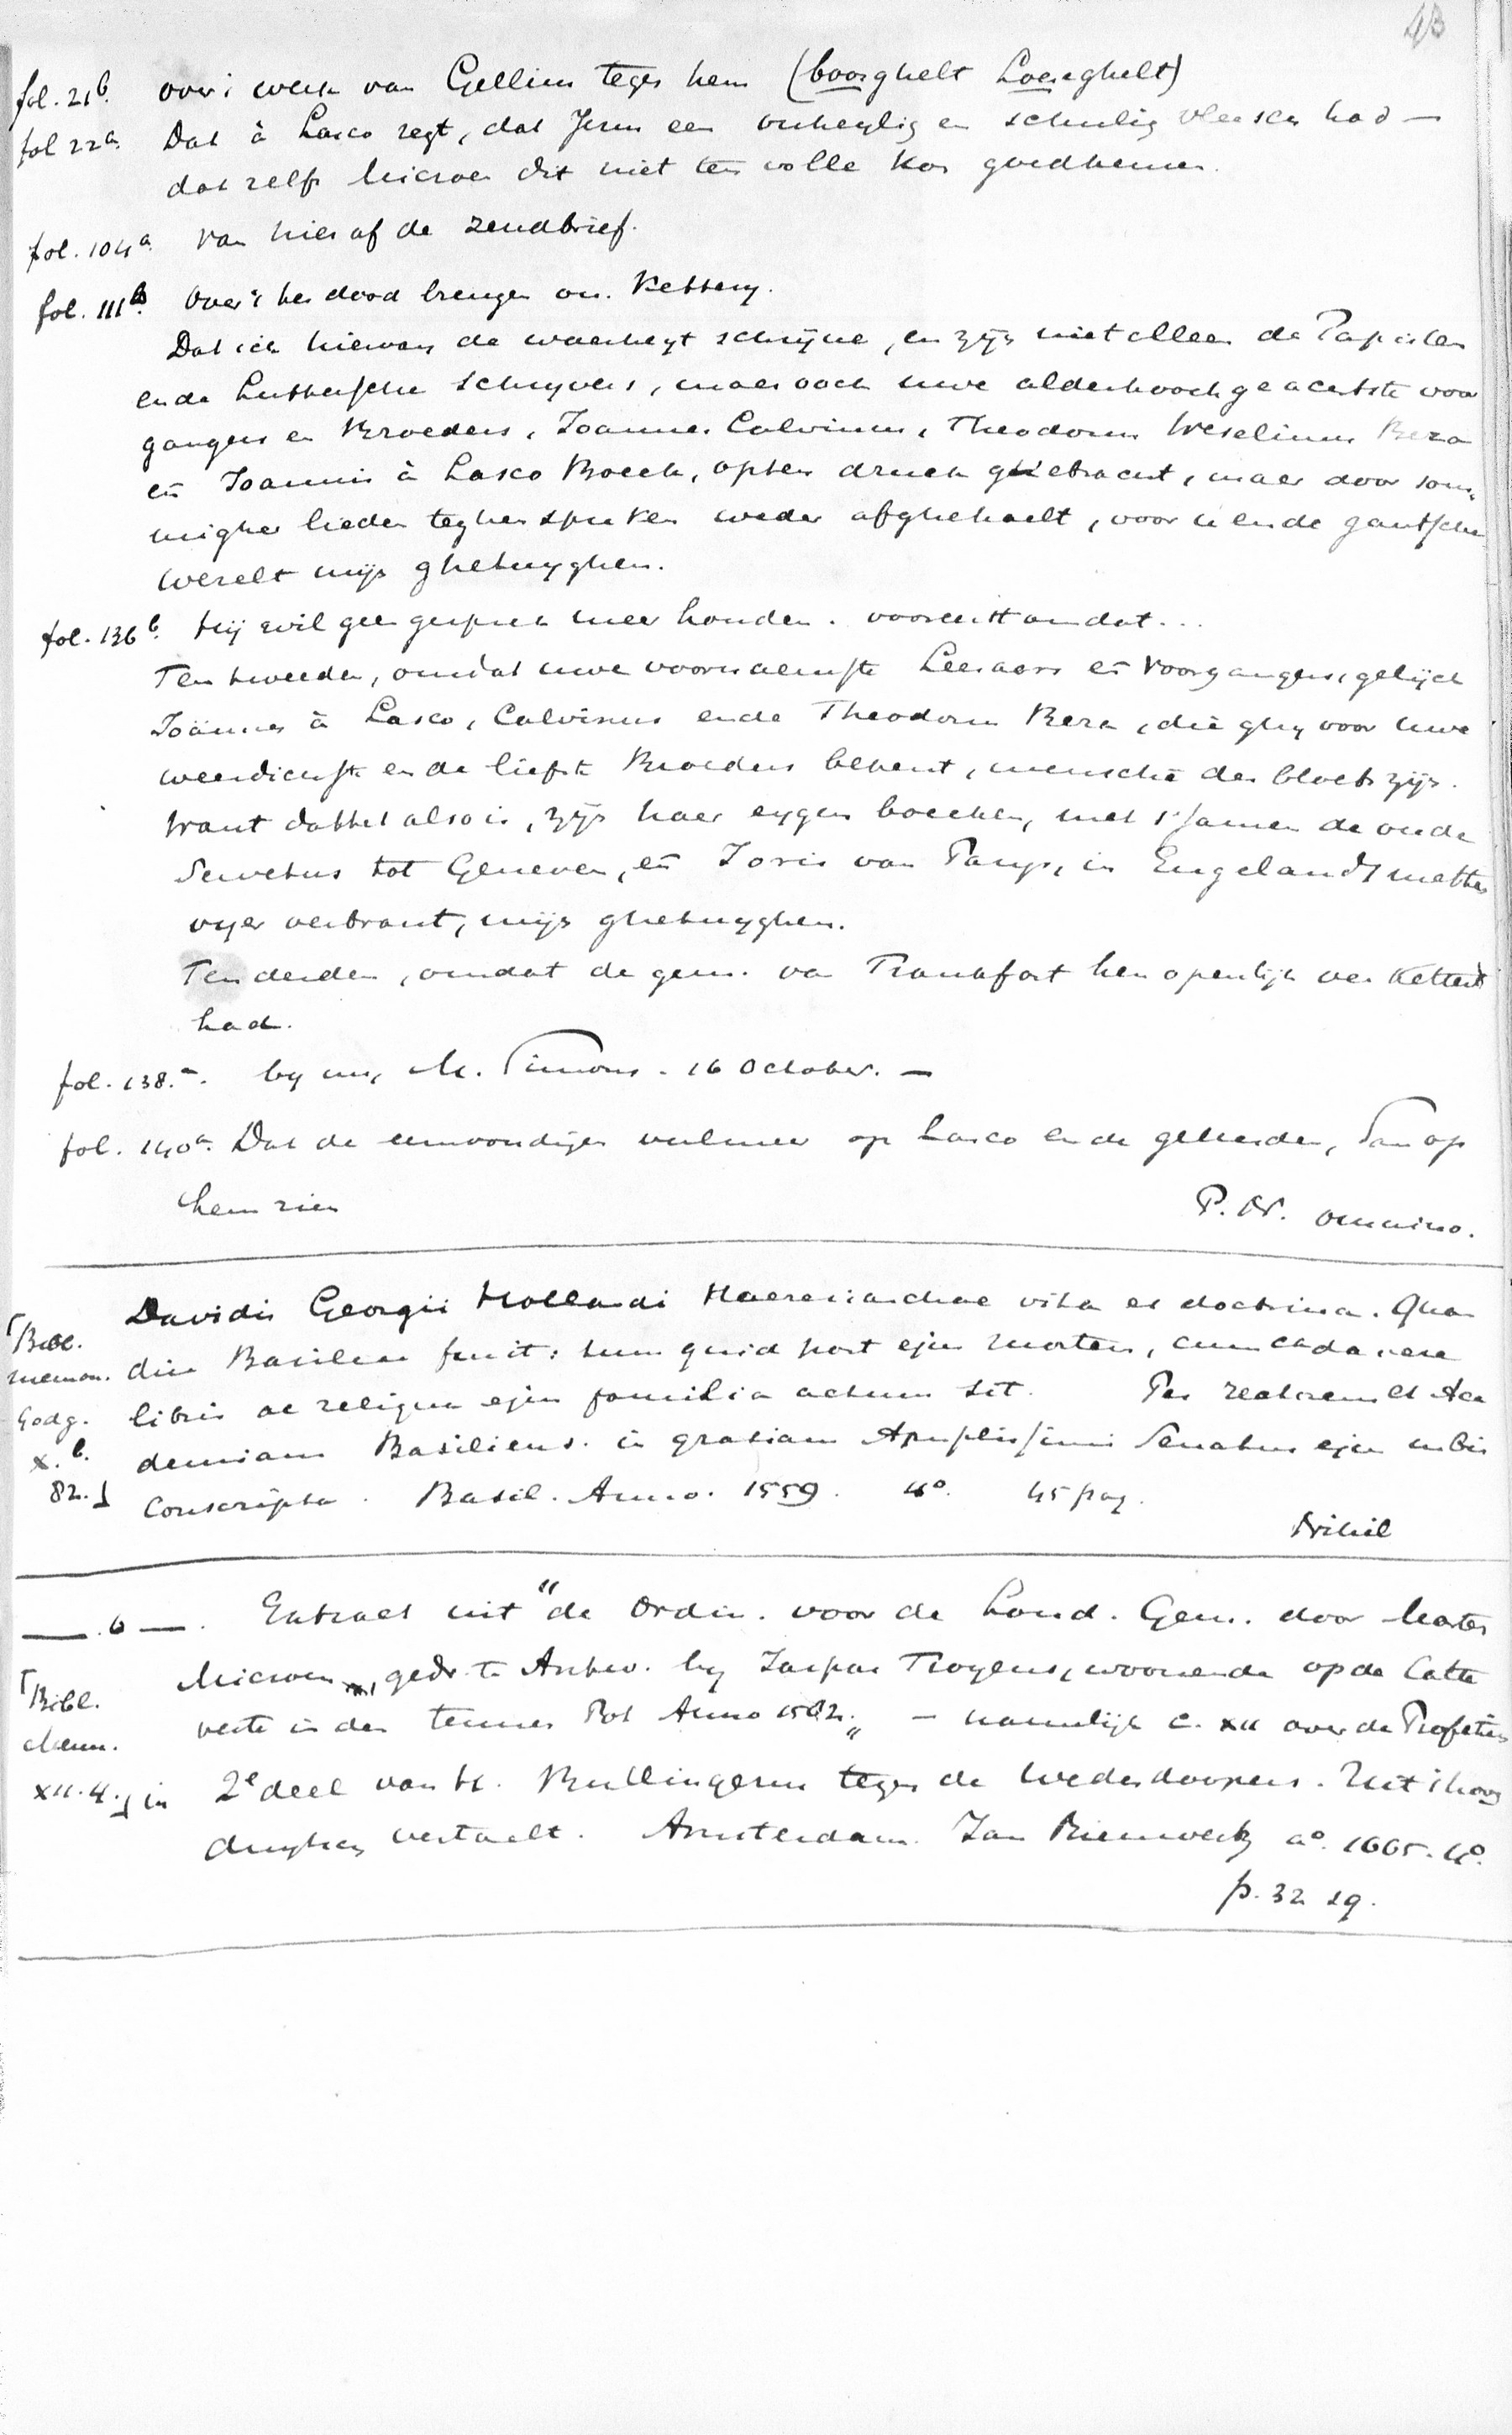 43
fol. 21b. over 't werk van Gellius tegen hem (boorghelt Loereghelt)
fol 22a. Dat à Lasco zegt, dat Jezus een onheylig en schuldig vleesch had —
dat zelfs Micron dit niet ten volle kon goedkeuren.
fol. 104a. van hier af de zendbrief.
fol. 111b. Over 't ter dood brengen om. Kettery.
Dat ick hiervan de waerheyt schrijve, en zijn niet alleen de Papisten
ende Luthersche schryvers, maer oock uwe alderhoochgeachtste voor
gangers en Broeders, Joannes Calvinus, Theodorus Weselinus Beza
eñ Joannis à Lasco Boeck, opten druck ghebracht, maer door som-
migher lieden teghenspreken weder afghehaelt, voor u ende gantsche
werelt mijn ghetuyghen.
fol. 136b. Hij wil geen gesprek meer houden. vooreerst omdat...
Ten tweeden, omdat uwe voornaemste Leeraers eñ voorgangers, gelijck
Joännes à Lasco, Calvinus ende Theodorus Beza, die ghy voor uwe
weerdichste ende liefste Broeders bekent, menschē des bloets zijn.
Want dattet also is, zijn haer eygen boecken, met t'samen de oude
Servetus tot Geneven, eñ Joris van Parys, in Engelandt metten
vyer verbrant, mijn ghetuyghen.
Ten derden, omdat de gem. van Frankfort hen openlijk verketterd
had.
fol. 138.a. by my, M. Simons. 16 October. —
fol. 140a. Dat de eenvoudigen veelmeer op Lasco en de geleerden, dan op
hem zien
P. N. omnino.
Davidis Georgii Hollandi Haeresiarchae vita et doctrina. Quan
[Bibl. diu Basileae fuit: tum quid post ejus mortem, cum cadavere
mennon. libris ac reliqua ejus familia actum sit. Per rectorem et Aca
Godg. demiam Basiliens. in gratiam Amplissimi Senatus ejus urbis
X. b. 82.] Conscripta. Basil. Anno. 1559. 4o. 45 pag.
Nihil
— . o — . Extract uit "de Ordin. voor de Lond. Gem. door Marten
Micron, gedr. te Antw. by Jaspar Troyens, woonende op de Catte
[Bibl. veste in den tennen Pot Anno 1582" — namelijk c. XII over de Profetien
Menn.
XII. 4.] in 2e deel van H. Bullingerus tegen de Wederdoopers. Uit 't hoog
duytsch vertaelt. Amsterdam. Jan Rieuwertsz ao. 1665. 4o.
p. 32 sq.